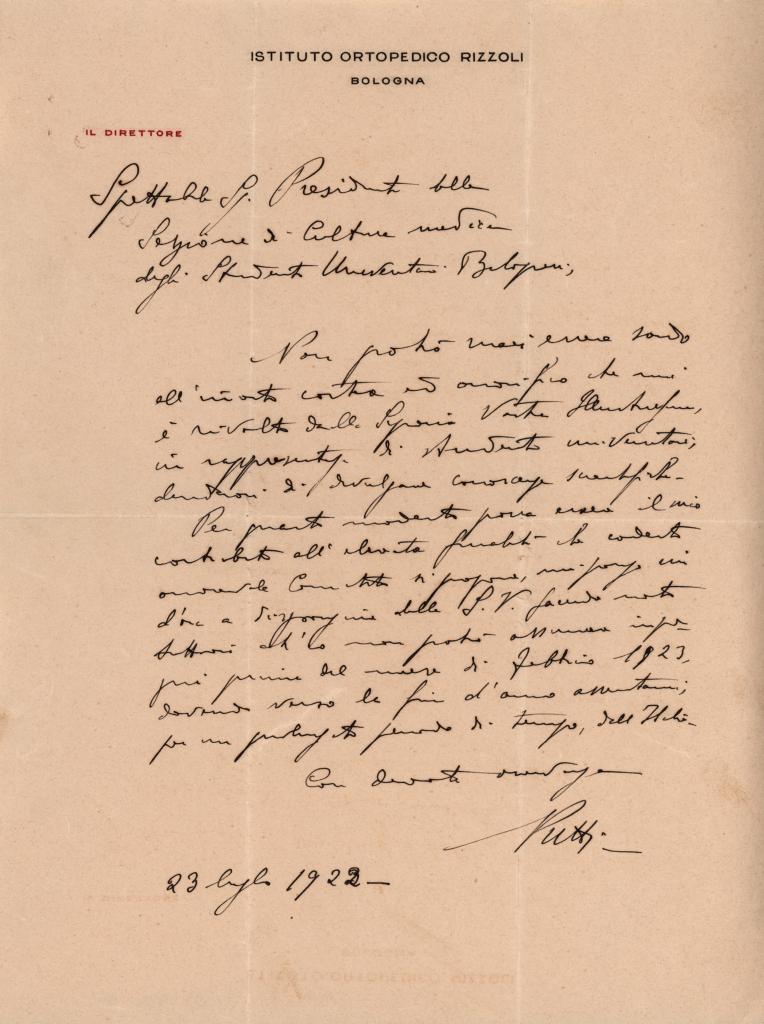 ISTITUTO ORTOPEDICO RIZZOLI
BOLOGNA
IL DIRETTORE
Spettabile Sg. Presidente della
Sezione di Cultura medica
degli Studenti Universitari Bolognesi,
Non potrò mai essere sordo
all'invito cortese ed onorifico che mi
è rivolto dalla Signoria Vostra Illustrissima,
in rappresentz. di studenti universitari,
desiderosi di divulgare conoscenze scientifiche.
Per quanto modesto possa essere il mio
contributo all'elevata finalità che codesto
onorevole Comitato si propone, mi pongo fin
d'ora a disposizione della S. V. facendo noto
ch'io non potrò assumere impe-
gni prima del mese di febbraio 1923,
dovendo verso la fin d'anno assentarmi,
per un prolungato periodo di tempo, dall'Italia.
Con devota osservanza
Putti
23 luglio 1922